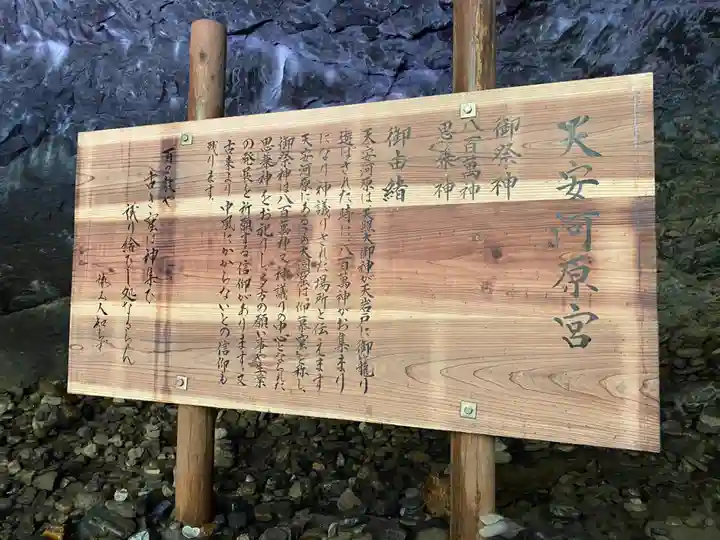 天安河原宮
御祭神
八百萬神
思兼神
御由緒
天安河原は天照大御神が天岩戸に御籠り
遊ばされた時に八百萬神がお集まり
になり神議りされた場所と伝えます
天安河原にある大洞窟は仰慕窟と称し、
御祭神は八百萬神又神議りの中心となられた、
思兼神をお祀りし多方の願い事や生業
の発展を祈願する信仰があります。又
古来より中風にかからないとの信仰も
残ります。
古き窟に神集ひ
議り給むし処なるらん